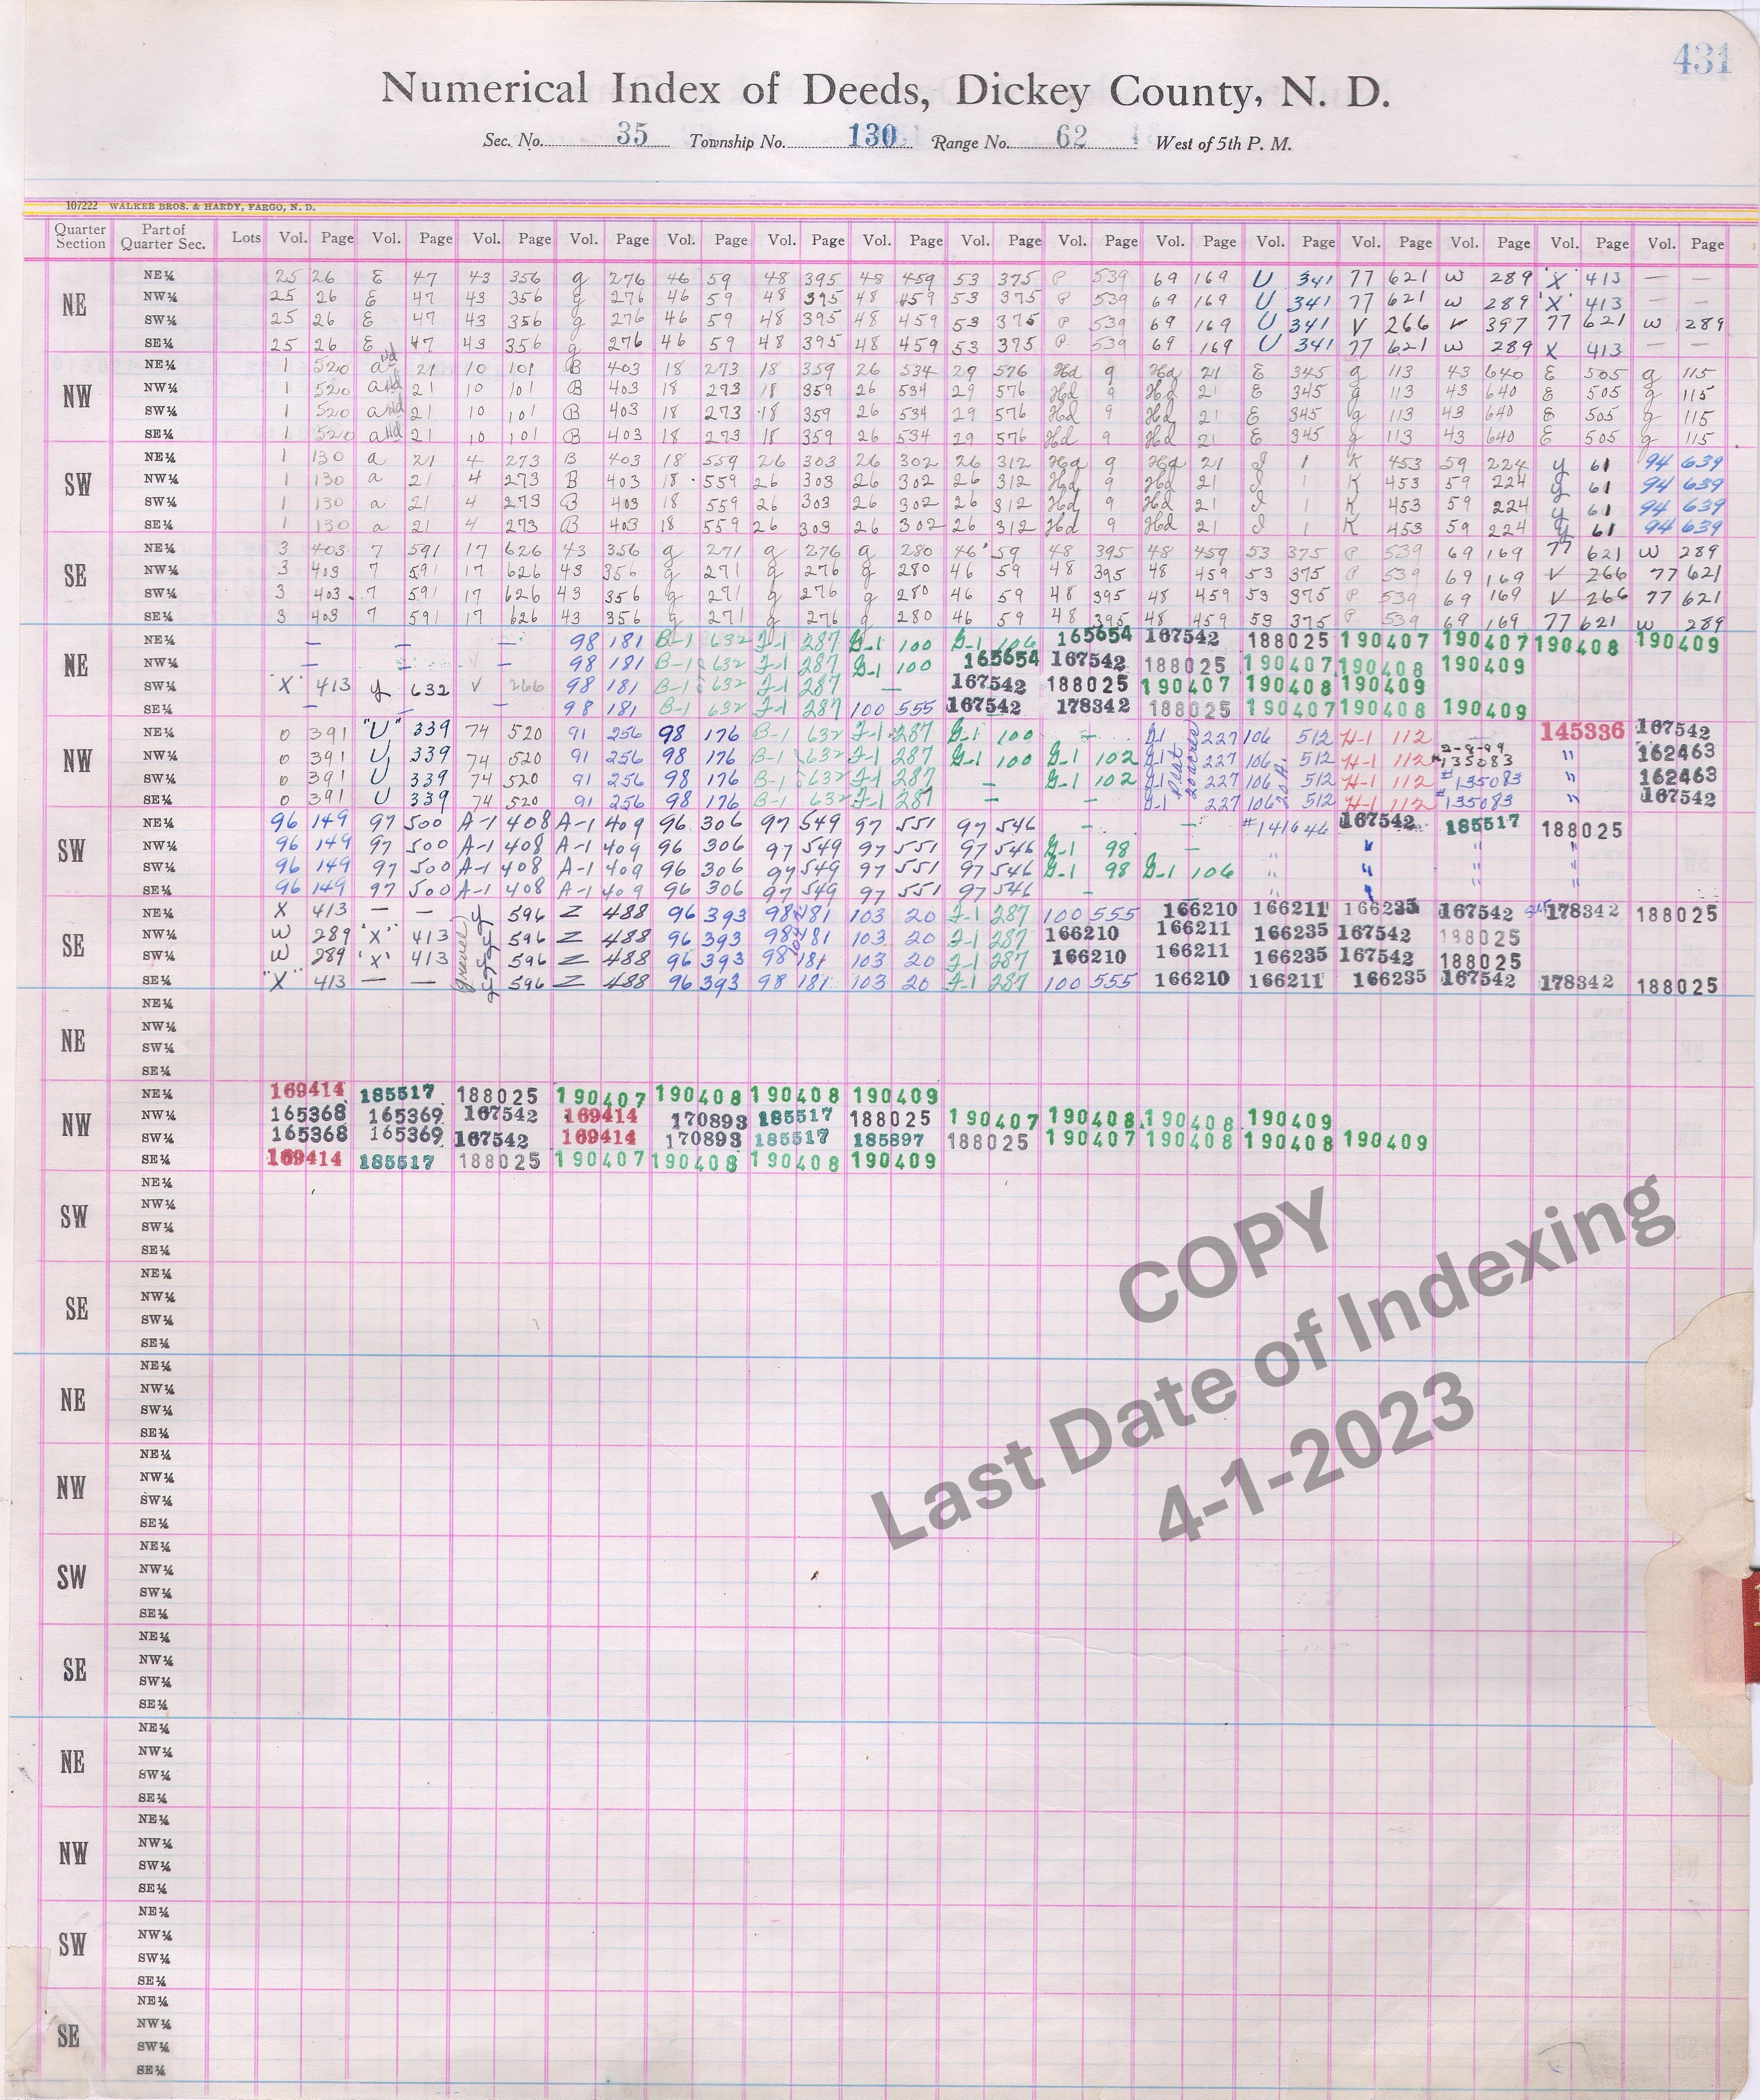 431
Numerical Index of Deeds, Dickey County, N. D.
Sec. No. 35 Township No. 130 Range No. 62 West of 5th P. M.
107222 WALKER BROS. & HARDY, FARGO, N. D.
Quarter Section Part of Quarter Sec. Lots Vol. Page Vol. Page Vol. Page Vol. Page Vol. Page Vol. Page Vol. Page Vol. Page Vol. Page Vol. Page Vol. Page Vol. Page Vol. Page Vol. Page Vol. Page
NE
NE¼ 25 26 E 47 43 356 g 276 46 59 48 395 48 459 53 375 P 539 69 169 U 341 77 621 W 289 "X" 413 — —
NW¼ 25 26 E 47 43 356 g 276 46 59 48 395 48 459 53 375 P 539 69 169 U 341 77 621 W 289 "X" 413 — —
SW¼ 25 26 E 47 43 356 g 276 46 59 48 395 48 459 53 375 P 539 69 169 U 341 V 266 V 397 77 621 W 289
SE¼ 25 26 E 47 43 356 g 276 46 59 48 395 48 459 53 375 P 539 69 169 U 341 77 621 W 289 X 413 — —
NW
NE¼ 1 520 a 21 10 101 B 403 18 273 18 359 26 534 29 576 Hd 9 Hd 21 E 345 g 113 43 640 E 505 g 115
NW¼ 1 520 a 21 10 101 B 403 18 273 18 359 26 534 29 576 Hd 9 Hd 21 E 345 g 113 43 640 E 505 g 115
SW¼ 1 520 a 21 10 101 B 403 18 273 18 359 26 534 29 576 Hd 9 Hd 21 E 345 g 113 43 640 E 505 g 115
SE¼ 1 520 a 21 10 101 B 403 18 273 18 359 26 534 29 576 Hd 9 Hd 21 E 345 g 113 43 640 E 505 g 115
SW
NE¼ 1 130 a 21 4 273 B 403 18 559 26 303 26 302 26 312 Hd 9 Hd 21 J 1 K 453 59 224 y 61 94 639
NW¼ 1 130 a 21 4 273 B 403 18 559 26 303 26 302 26 312 Hd 9 Hd 21 J 1 K 453 59 224 y 61 94 639
SW¼ 1 130 a 21 4 273 B 403 18 559 26 303 26 302 26 312 Hd 9 Hd 21 J 1 K 453 59 224 y 61 94 639
SE¼ 1 130 a 21 4 273 B 403 18 559 26 303 26 302 26 312 Hd 9 Hd 21 J 1 K 453 59 224 y 61 94 639
SE
NE¼ 3 403 7 591 17 626 43 356 g 271 g 276 g 280 46 59 48 395 48 459 53 375 P 539 69 169 77 621 W 289
NW¼ 3 403 7 591 17 626 43 356 g 271 g 276 g 280 46 59 48 395 48 459 53 375 P 539 69 169 V 266 77 621
SW¼ 3 403 7 591 17 626 43 356 g 271 g 276 g 280 46 59 48 395 48 459 53 375 P 539 69 169 V 266 77 621
SE¼ 3 403 7 591 17 626 43 356 g 271 g 276 g 280 46 59 48 395 48 459 53 375 P 539 69 169 77 621 W 289
NE
NE¼ — — — 98 181 B-1 632 F-1 287 G-1 100 G-1 106 165654 167542 188025 190407 190407 190408 190409
NW¼ — — — 98 181 B-1 632 F-1 287 G-1 100 165654 167542 188025 190407 190408 190409
SW¼ "X" 413 y 632 V 266 98 181 B-1 632 F-1 287 — 167542 188025 190407 190408 190409
SE¼ — — — 98 181 B-1 632 F-1 287 100 555 167542 178342 188025 190407 190408 190409
NW
NE¼ O 391 "U" 339 74 520 91 256 98 176 B-1 632 F-1 287 G-1 100 — G-1 227 106 512 H-1 112 — 145336 167542
NW¼ O 391 U 339 74 520 91 256 98 176 B-1 632 F-1 287 G-1 100 G-1 102 G-1 227 106 512 H-1 112 2-8-99 #135083 " 162463
SW¼ O 391 U 339 74 520 91 256 98 176 B-1 632 F-1 287 — G-1 102 G-1 227 106 512 H-1 112 #135083 " 162463
SE¼ O 391 U 339 74 520 91 256 98 176 B-1 632 F-1 287 — — G-1 227 106 512 H-1 112 #135083 " 167542
SW
NE¼ 96 149 97 500 A-1 408 A-1 409 96 306 97 549 97 551 97 546 — — #141646 167542 185517 188025
NW¼ 96 149 97 500 A-1 408 A-1 409 96 306 97 549 97 551 97 546 G-1 98 — " " " "
SW¼ 96 149 97 500 A-1 408 A-1 409 96 306 97 549 97 551 97 546 G-1 98 G-1 106 " " " "
SE¼ 96 149 97 500 A-1 408 A-1 409 96 306 97 549 97 551 97 546 — " " " "
SE
NE¼ X 413 — — y 596 Z 488 96 393 98 181 103 20 F-1 287 100 555 166210 166211 166235 167542 178342 188025
NW¼ W 289 "X" 413 gravel y 596 Z 488 96 393 98 181 103 20 F-1 287 166210 166211 166235 167542 188025
SW¼ W 289 "X" 413 y 596 Z 488 96 393 98 181 103 20 F-1 287 166210 166211 166235 167542 188025
SE¼ "X" 413 — — y 596 Z 488 96 393 98 181 103 20 F-1 287 100 555 166210 166211 166235 167542 178342 188025
NE
NE¼
NW¼
SW¼
SE¼
NW
NE¼ 169414 185517 188025 190407 190408 190408 190409
NW¼ 165368 165369 167542 169414 170893 185517 188025 190407 190408 190408 190409
SW¼ 165368 165369 167542 169414 170893 185517 185897 188025 190407 190408 190408 190409
SE¼ 169414 185517 188025 190407 190408 190408 190409
SW
NE¼
NW¼
SW¼
SE¼
SE
NE¼
NW¼
SW¼
SE¼
COPY
Last Date of Indexing
4-1-2023
NE
NE¼
NW¼
SW¼
SE¼
NW
NE¼
NW¼
SW¼
SE¼
SW
NE¼
NW¼
SW¼
SE¼
SE
NE¼
NW¼
SW¼
SE¼
NE
NE¼
NW¼
SW¼
SE¼
NW
NE¼
NW¼
SW¼
SE¼
SW
NE¼
NW¼
SW¼
SE¼
SE
NE¼
NW¼
SW¼
SE¼